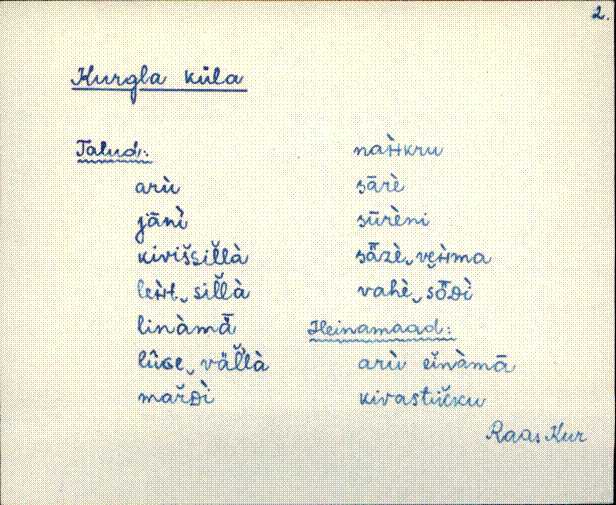 2.
Kurgla küla
Talud:
arù
jānì
kivišsil̆là
leʜt‿sil̆là
linàmā̆
lûɢe‿väl̆là
mar̆ᴅì
naʜkru
sārè
sūrèni
sāzè‿veʜma
vahè‿sō̆ᴅì
Heinamaad:
arù eĭnàmā
kivastik̆ku
Raas Kur